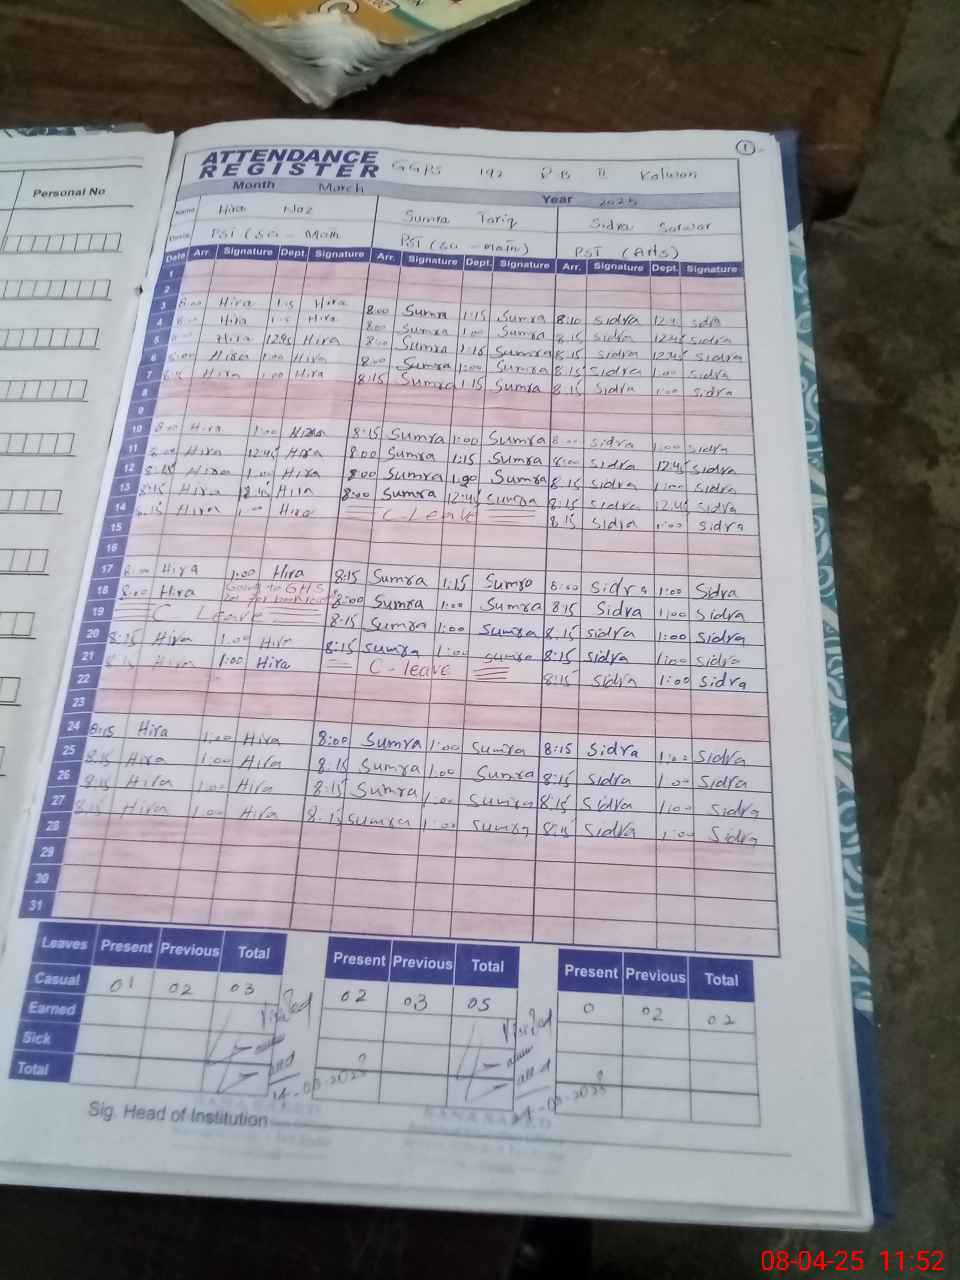 Personal No
1
ATTENDANCE
REGISTER GGPS 192 Kalwan
Month March Year 2025
Name Hira Naz Sumra Tariq Sidra Sarwar
PST (Arts)
Date Arr. Signature Dept. Signature Arr. Signature Dept. Signature Arr. Signature Dept. Signature
1
2
3 8:00 Hira 1:15 Hira 8:00 Sumra 1:15 Sumra 8:10 Sidra Sidra
4 Hira Hira 8:00 Sumra 1:00 Sumra 8:15 Sidra 12:45 Sidra
5 Hira 12:45 Hira 8:00 Sumra 1:15 Sumra 8:15 Sidra 12:45 Sidra
6 8:00 Hira 1:00 Hira 8:00 Sumra 1:00 Sumra 8:15 Sidra 1:00 Sidra
7 8:15 Hira 1:00 Hira 8:15 Sumra 1:15 Sumra 8:15 Sidra 1:00 Sidra
8
9
10 8:00 Hira 1:00 Hira 8:15 Sumra 1:00 Sumra 8:00 Sidra 1:00 Sidra
11 8:00 Hira 12:45 Hira 8:00 Sumra 1:15 Sumra 8:00 Sidra 12:45 Sidra
12 8:15 Hira 1:00 Hira 8:00 Sumra 1:00 Sumra 8:15 Sidra 1:00 Sidra
13 8:15 Hira 12:45 Hira 8:00 Sumra 12:45 Sumra 8:15 Sidra 12:45 Sidra
14 8:15 Hira 1:00 Hira C Leave 8:15 Sidra 1:00 Sidra
15
16
17 8:00 Hira 1:00 Hira 8:15 Sumra 1:15 Sumra 8:00 Sidra 1:00 Sidra
18 8:00 Hira Going to GHS 8:00 Sumra 1:00 Sumra 8:15 Sidra 1:00 Sidra
19 C Leave 8:15 Sumra 1:00 Sumra 8:15 Sidra 1:00 Sidra
20 8:15 Hira 1:00 Hira 8:15 Sumra 1:00 Sumra 8:15 Sidra 1:00 Sidra
21 8:15 Hira 1:00 Hira C-leave 8:15 Sidra 1:00 Sidra
22
23
24 8:15 Hira 1:00 Hira 8:00 Sumra 1:00 Sumra 8:15 Sidra 1:00 Sidra
25 8:15 Hira 1:00 Hira 8:15 Sumra 1:00 Sumra 8:15 Sidra 1:00 Sidra
26 8:15 Hira 1:00 Hira 8:15 Sumra 1:00 Sumra 8:15 Sidra 1:00 Sidra
27 8:15 Hira 1:00 Hira 8:15 Sumra 1:00 Sumra 8:15 Sidra 1:00 Sidra
28
29
30
31
Leaves Present Previous Total Present Previous Total Present Previous Total
Casual 01 02 03 02 03 05 0 02 02
Earned Visited Visited
Sick
Total
Sig. Head of Institution
08-04-25 11:52